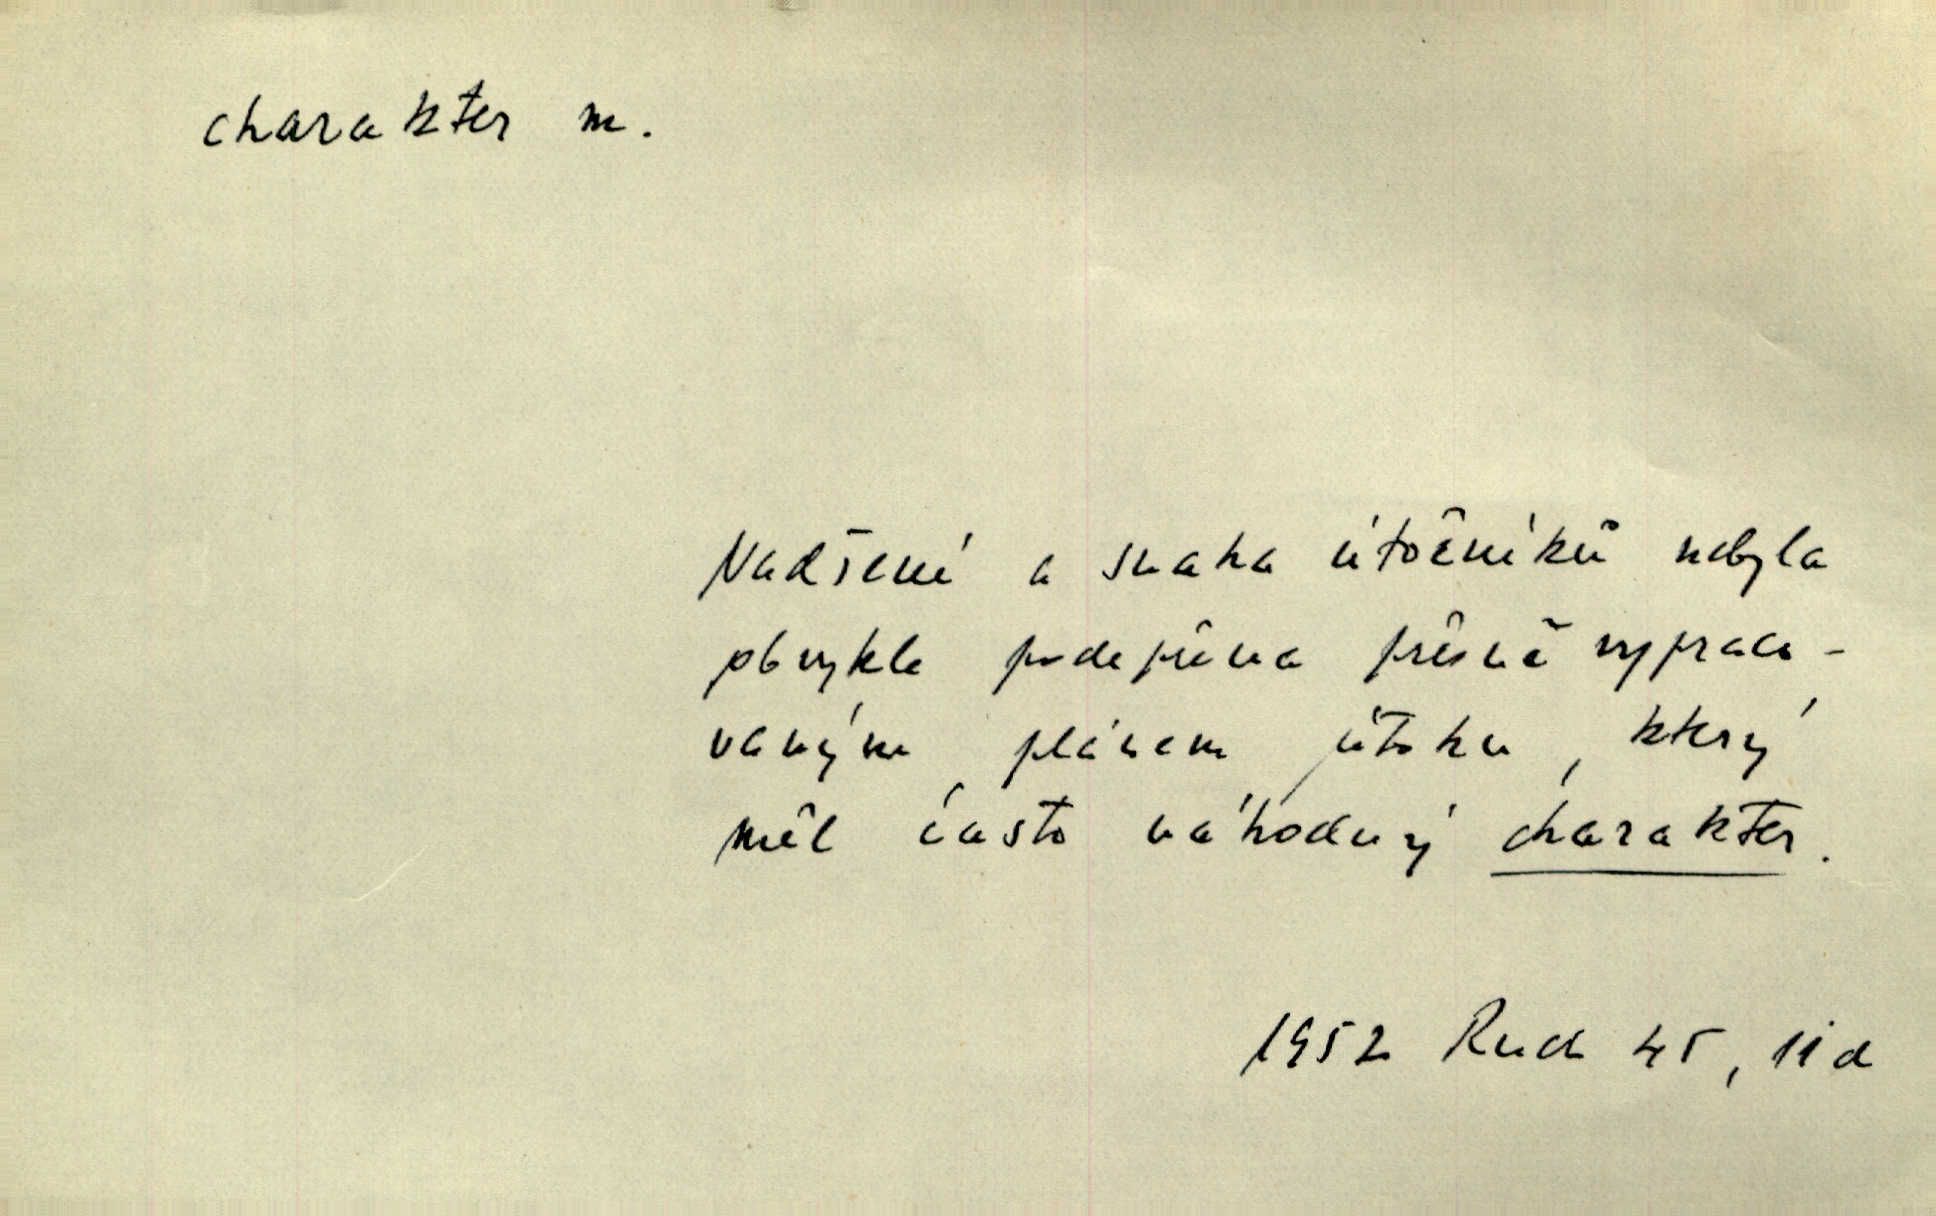 charakter m.
Nadšení a snaha útočníků nebyla
obvykle podepřena přesně vypraco-
vaným plánem útoku, který
měl často náhodný charakter.
1952 Rud 45, 11d